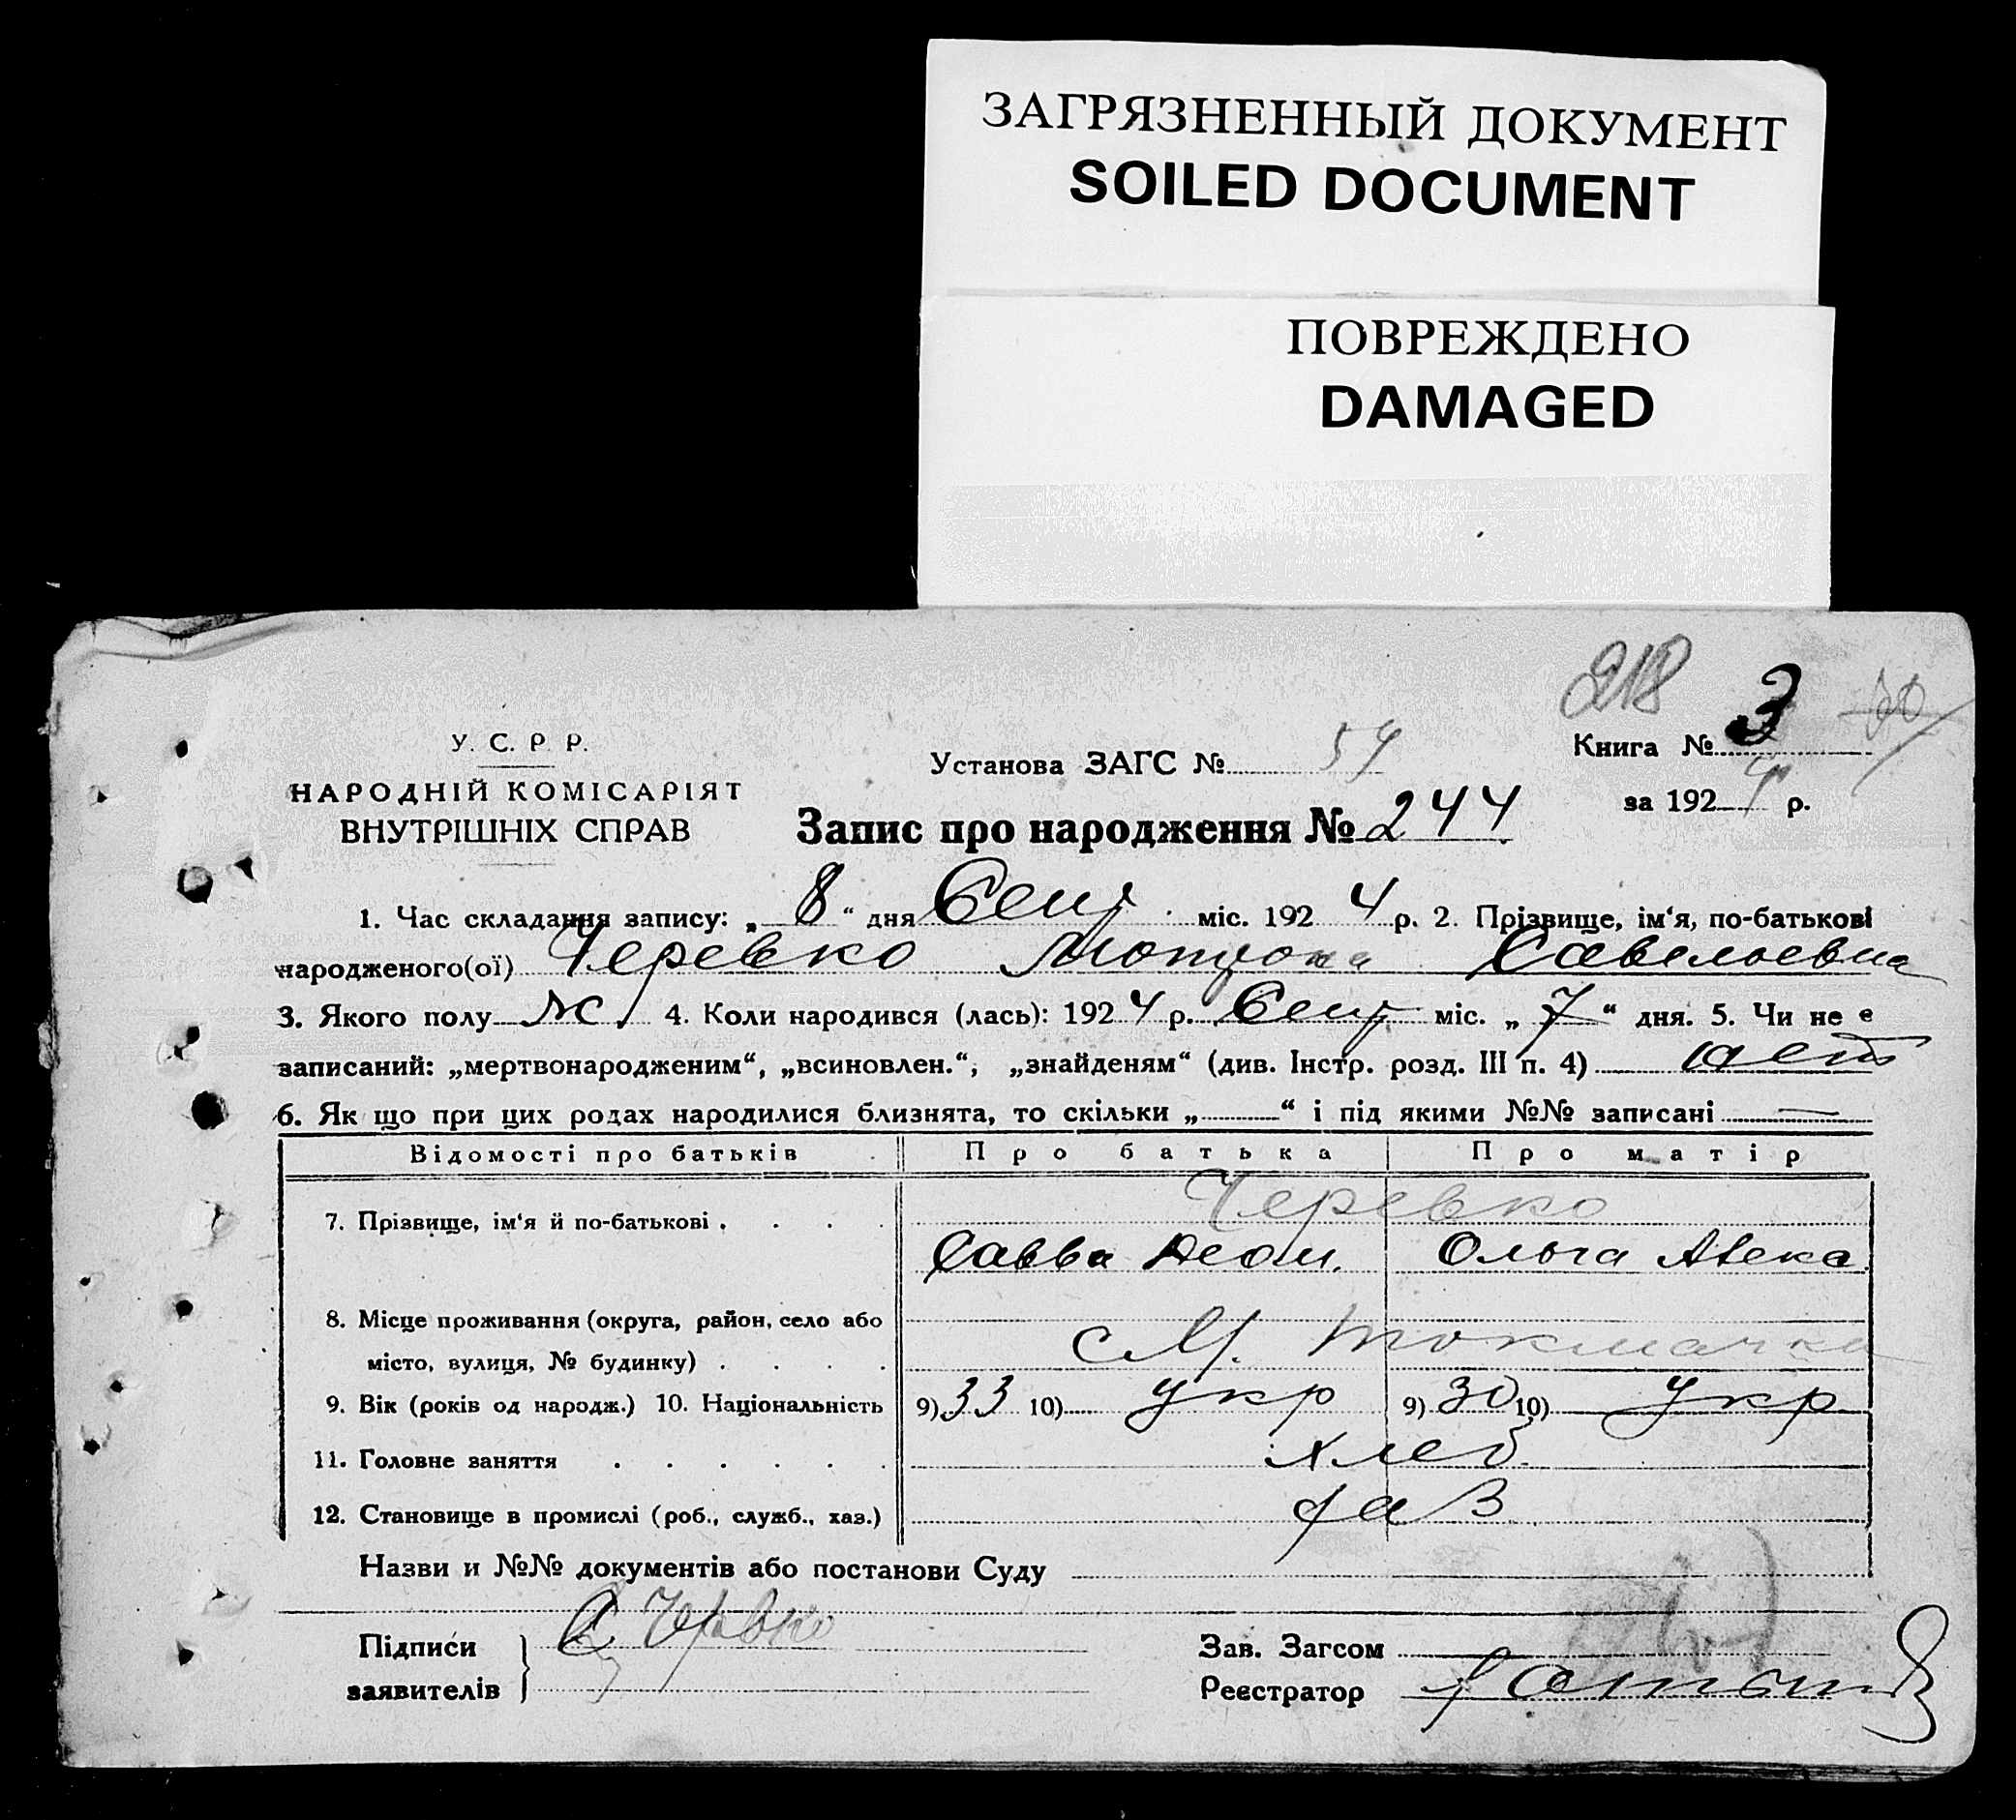 ЗАГРЯЗНЕННЫЙ ДОКУМЕНТ
SOILED DOCUMENT
ПОВРЕЖДЕНО
DAMAGED
218
У. С. Р. Р.
НАРОДНІЙ КОМІСАРІЯТ
ВНУТРІШНІХ СПРАВ
Установа ЗАГС № 54
Книга № 3
за 1924 р.
Запис про народження № 244
1. Час складання запису: „8“ дня Сент. міс. 1924 р. 2. Прізвище, ім‘я, по-батькові
народженого(ої) Черевко Савельевна
3. Якого полу ж. 4. Коли народився (лась): 1924 р. Сент. міс. „7“ дня. 5. Чи не є
записаний: „мертвонародженим“, „всиновлен.“, „знайденям“ (див. Інстр. розд. III п. 4) нет
6. Як що при цих родах народилися близнята, то скільки „ “ і під якими №№ записані —
Відомості про батьків Про батька Про матір
7. Прізвище, ім‘я й по-батькові Черевко
Савва Леон. Ольга Алекс.
8. Місце проживання (округа, район, село або
місто, вулиця, № будинку) с М. Токмачка
9. Вік (років од народж.) 10. Національність 9) 33 10) укр 9) 30 10) укр
11. Головне заняття хлеб.
12. Становище в промислі (роб., служб., хаз.)
Назви и №№ документів або постанови Суду
Підписи
заявителів
Зав. Загсом
Реєстратор